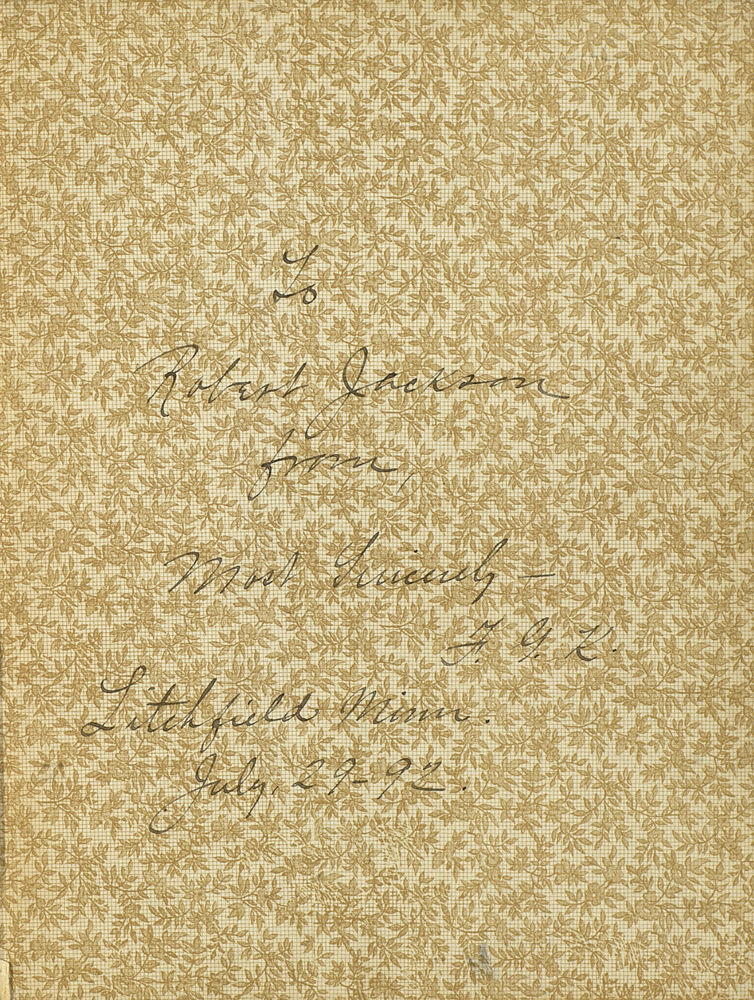 To
Robert Jackson
from,
Most Sincerely —
F. G. K.
Litchfield Minn.
July, 29-92.